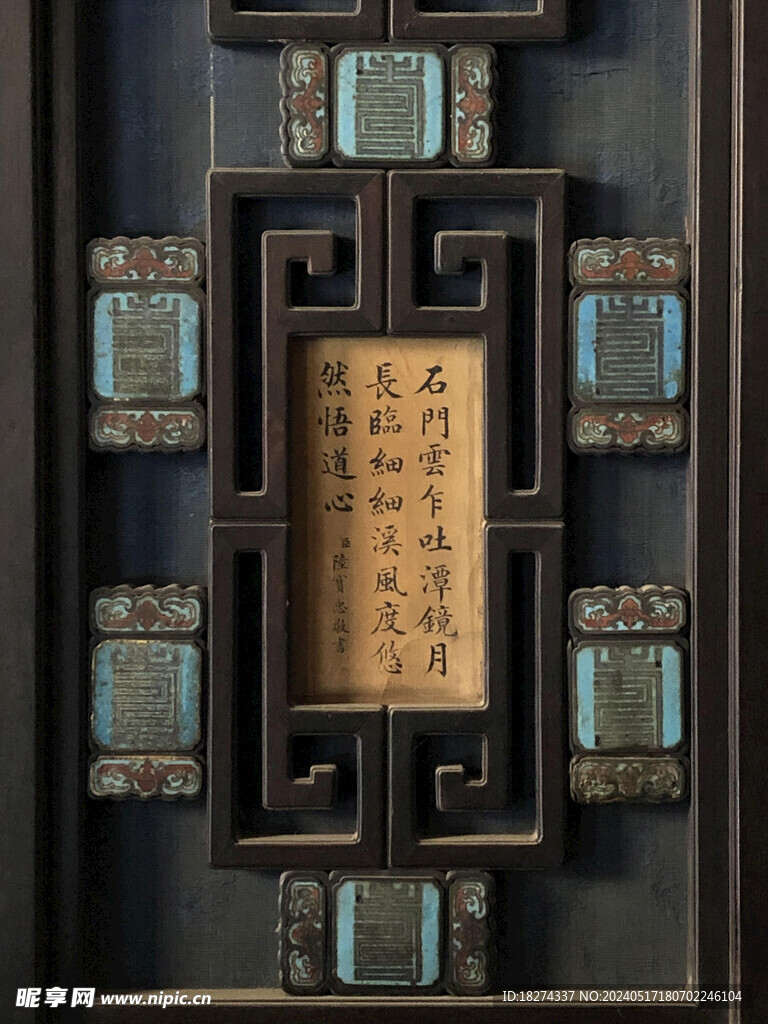 石門雲乍吐潭鏡月
長臨細細溪風度悠
然悟道心
臣陸寶忠敬書
昵享网 www.nipic.cn
ID:18274337 NO:20240517180702246104